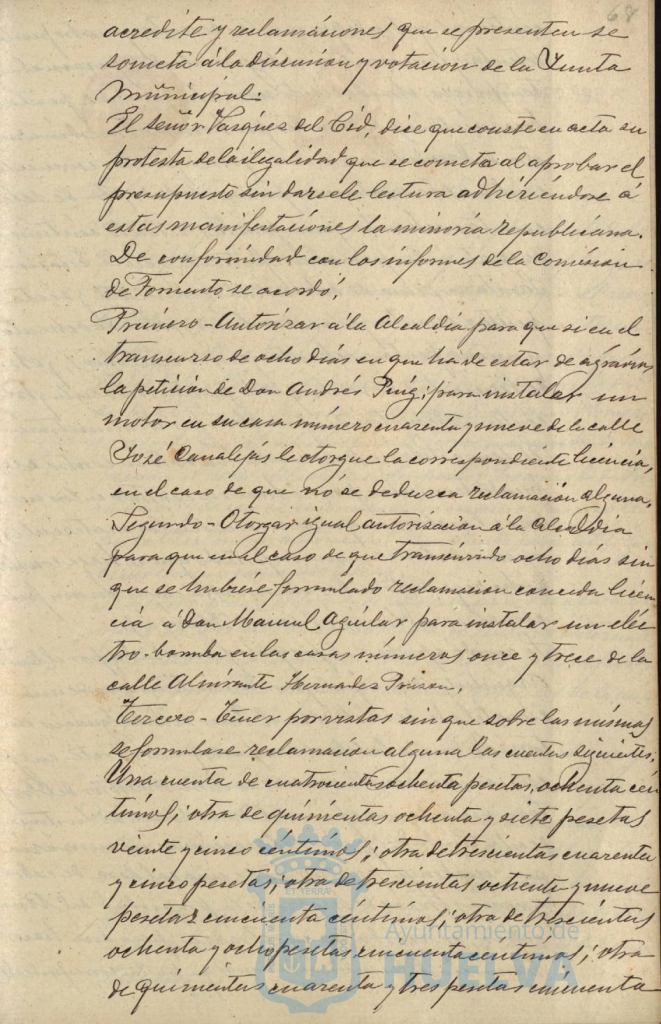 68
acredite y reclamaciones que se presenten se
someta á la discusion y votacion de la Junta
Municipal.
El señor Vasquez del Cid, dice que conste en acta su
protesta de la ilegalidad que se cometa al aprobar el
presupuesto sin darsele lectura adhiriendose á
estas manifestaciones la minoria republicana.
De conformidad con los informes de la Comision
de Fomento, se acordó,
Primero - Autorizar á la Alcaldia para que si en el
transcurso de ocho dias en que ha de estar de agravios
la petición de Don Andrés Puig, para instalar un
motor en su casa número cuarenta y nueve de la calle
José Canalejas le otorgue la correspondiente licencia,
en el caso de que no se deduzca reclamación alguna.
Segundo - Otorgar igual autorizacion á la Alcaldia
para que en el caso de que transcurrido ocho dias sin
que se hubiese formulado reclamacion conceda licen
cia á Don Manuel Aguilar para instalar un eléc
tro-bomba en las casas números once y trece de la
calle Almirante Hernandez Pinzon.
Tercero - Tener por vistas sin que sobre las mismas
se formulase reclamación alguna las cuentas siguientes:
Una cuenta de cuatrocientas ochenta pesetas, ochenta cén
timos; otra de quinientas ochenta y siete pesetas
veinte y cinco céntimos; otra de trescientas cuarenta
y cinco pesetas; otra de trescientas ochenta y nueve
pesetas cincuenta céntimos; otra de trescientas
ochenta y ocho pesetas cincuenta céntimos; otra
de quinientas cuarenta y tres pesetas cincuenta
Ayuntamiento de
HUELVA